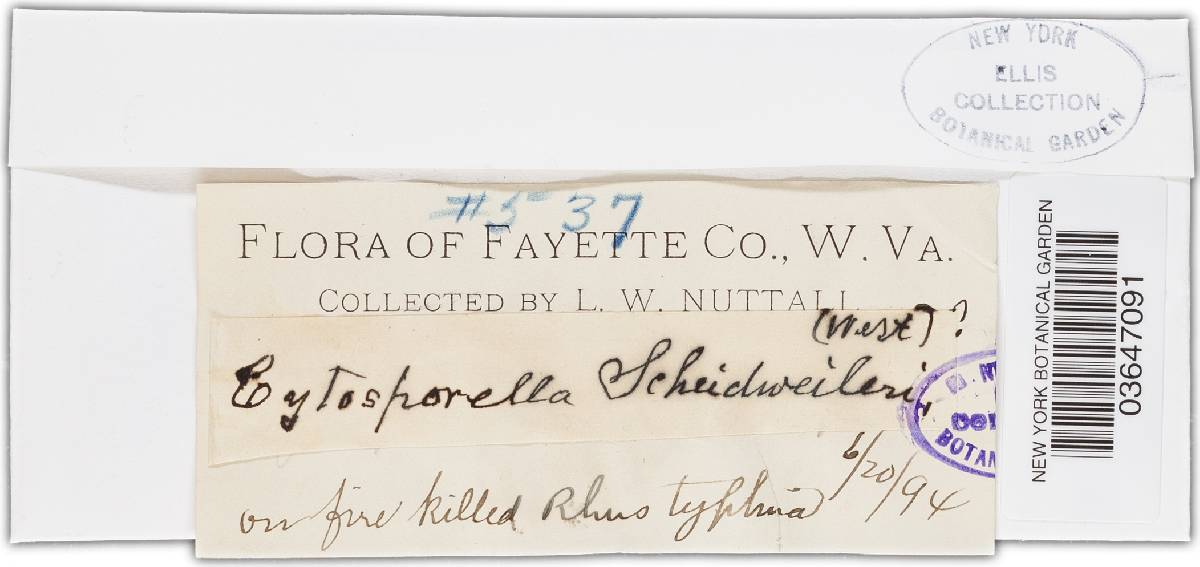 NEW YORK
ELLIS
COLLECTION
BOTANICAL GARDEN
#537
FLORA OF FAYETTE CO., W. VA.
COLLECTED BY L. W. NUTTALL
(West) ?
Cytosporella Scheidweileri
on fire killed Rhus typhina 6/20/94
BOTAN
NEW YORK BOTANICAL GARDEN
03647091